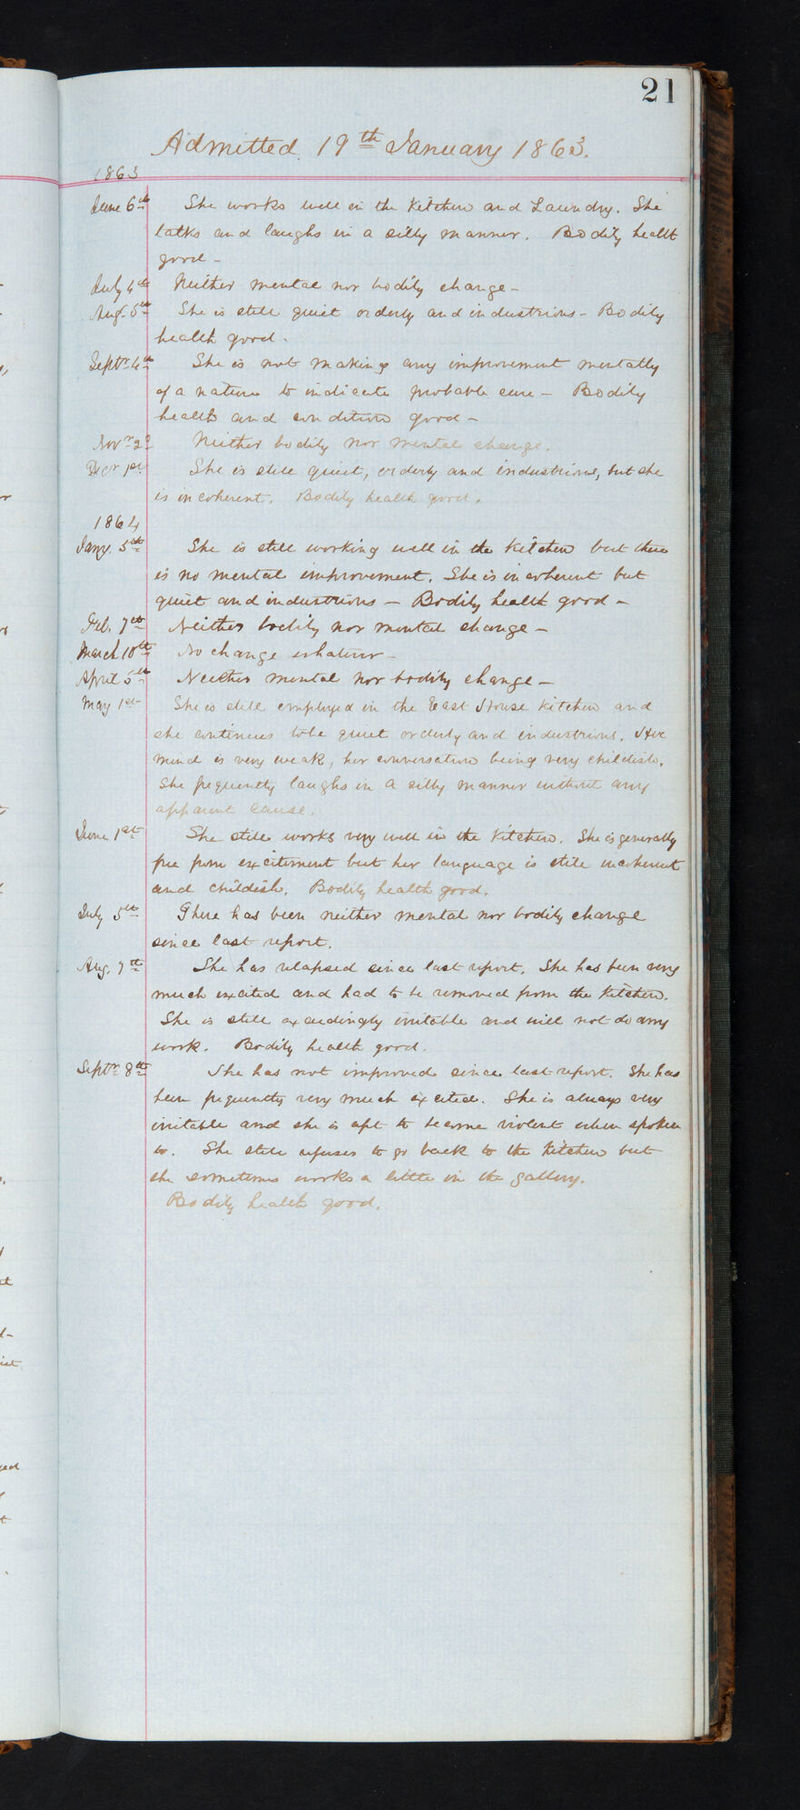 21
Admitted 19th January 1863.
1863
June 6th She works well in the Kitchen and Laundry. She
talks and laughs in a silly manner. Bodily health
good -
July 4th Neither mental nor bodily change -
Aug. 5th She is still quiet orderly and industrious - Bodily
health good.
Septr. 4th She is not making any improvement mentally
of a nature to indicate probable cure - Bodily
health and condition good -
Novr. 2d Neither bodily nor mental change.
Decr 1st She is still quiet, orderly and industrious, but she
is incoherent. Bodily health good.
1864
Jany. 5th She is still working well in the Kitchen but there
is no mental improvement. She is incoherent but
quiet and industrious - Bodily health good -
Feb. 7th Neither bodily nor mental change -
March 10th No change whatever -
April 5th Neither mental nor bodily change -
May 1st She is still employed in the East House Kitchen and
she continues to be quiet orderly and industrious. Her
mind is very weak, her conversation being very childish.
She frequently laughs in a silly manner without any
apparent cause.
June 1st She still works very well in the Kitchen. She is generally
free from excitement but her language is still incoherent
and childish. Bodily health good.
July 5th There has been neither mental nor bodily change
since last report.
Aug. 7th She has relapsed since last report. She has been very
much excited and had to be removed from the Kitchen.
She is still exceedingly irritable and will not do any
work. Bodily health good.
Septr. 8th She has not improved since last report. She has
been frequently very much excited. She is always very
irritable and she is apt to become violent when spoken
to. She still refuses to go back to the Kitchen but
she sometimes works a little in the gallery.
Bodily health good.